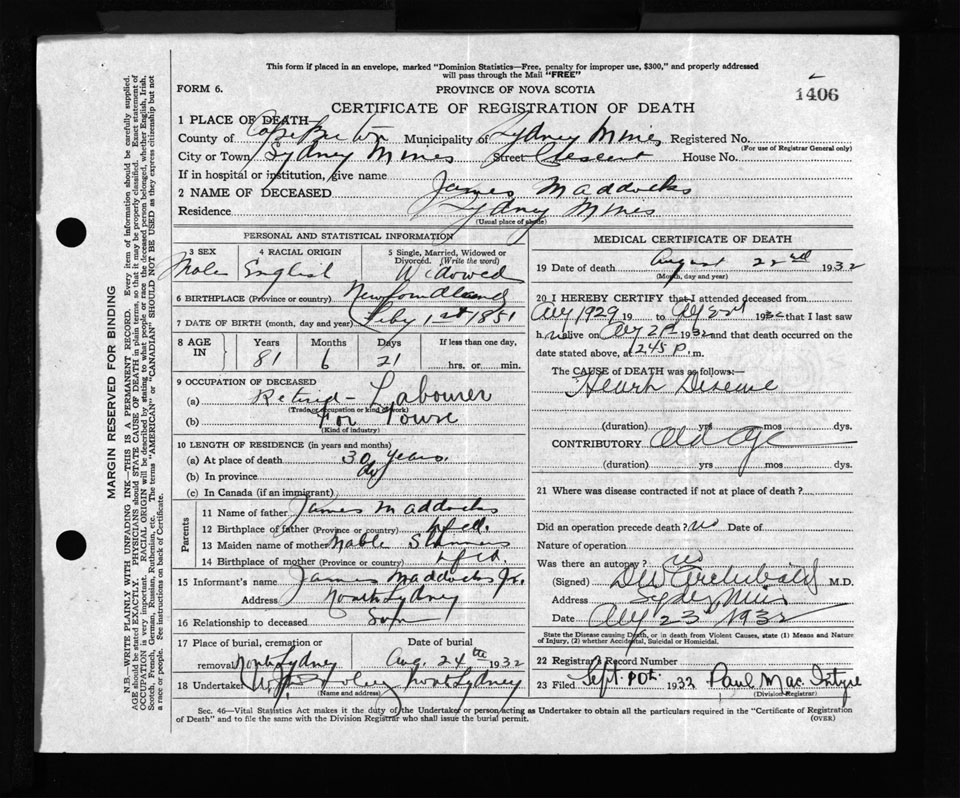 This form if placed in an envelope, marked "Dominion Statistics—Free, penalty for improper use, $300," and properly addressed
will pass through the Mail "FREE"
FORM 6.
PROVINCE OF NOVA SCOTIA
1406
CERTIFICATE OF REGISTRATION OF DEATH
1 PLACE OF DEATH
County of Cape Breton Municipality of Sydney Mines Registered No.
(For use of Registrar General only)
City or Town Sydney Mines Street Crescent House No.
If in hospital or institution, give name
2 NAME OF DECEASED James Maddocks
Residence Sydney Mines
(Usual place of abode)
PERSONAL AND STATISTICAL INFORMATION
3 SEX 4 RACIAL ORIGIN 5 Single, Married, Widowed or Divorced. (Write the word)
Male English Widowed
6 BIRTHPLACE (Province or country) Newfoundland
7 DATE OF BIRTH (month, day and year) Feby 1st 1851
8 AGE IN Years Months Days If less than one day,
81 6 21 hrs. or min.
9 OCCUPATION OF DECEASED
(a) Retired - Labourer
(Trade occupation or kind of work)
(b) For Town
(Kind of industry)
10 LENGTH OF RESIDENCE (in years and months)
(a) At place of death 30 years.
(b) In province do
(c) In Canada (if an immigrant)
Parents
11 Name of father James Maddocks
12 Birthplace of father (Province or country) Nfld.
13 Maiden name of mother Mable
14 Birthplace of mother (Province or country) Nfld
15 Informant's name James Maddocks Jr.
Address North Sydney
16 Relationship to deceased Son
17 Place of burial, cremation or removal Date of burial
North Sydney Aug. 24th 1932
18 Undertaker North Sydney
(Name and address)
MEDICAL CERTIFICATE OF DEATH
19 Date of death August 22nd 1932
(Month, day and year)
20 I HEREBY CERTIFY that I attended deceased from
Aug 1929 19 to Aug 1932 that I last saw
h alive on Aug 1932 and that death occurred on the
date stated above, at 2.45 P. m.
The CAUSE of DEATH was as follows:—
Heart Disease
(duration) yrs mos dys.
CONTRIBUTORY Old Age
(duration) yrs mos dys.
21 Where was disease contracted if not at place of death?
Did an operation precede death? no Date of
Nature of operation
Was there an autopsy? no
(Signed) Archibald M.D.
Address Sydney Mines
Date Aug 23 1932
State the Disease causing Death, or in death from Violent Causes, state (1) Means and Nature
of Injury, (2) whether Accidental, Suicidal or Homicidal.
22 Registrar's Record Number
23 Filed Sept. 1932 Paul Mac.Intyre
(Division Registrar)
Sec. 46—Vital Statistics Act makes it the duty of the Undertaker or person acting as Undertaker to obtain all the particulars required in the "Certificate of Registration
of Death" and to file the same with the Division Registrar who shall issue the burial permit.
(OVER)
MARGIN RESERVED FOR BINDING
N.B.—WRITE PLAINLY WITH UNFADING INK—THIS IS A PERMANENT RECORD. Every item of information should be carefully supplied.
AGE should be stated EXACTLY. PHYSICIANS should STATE CAUSE OF DEATH in plain terms, so that it may be properly classified. Exact statement of
OCCUPATION is very important. RACIAL ORIGIN will be described by stating to what people or race the deceased person belonged, whether English, Irish,
Scotch, French, German, Russian, Ruthenian, etc. The terms "AMERICAN" or "CANADIAN" SHOULD NOT BE USED as they express citizenship but not
a race or people. See instructions on back of Certificate.